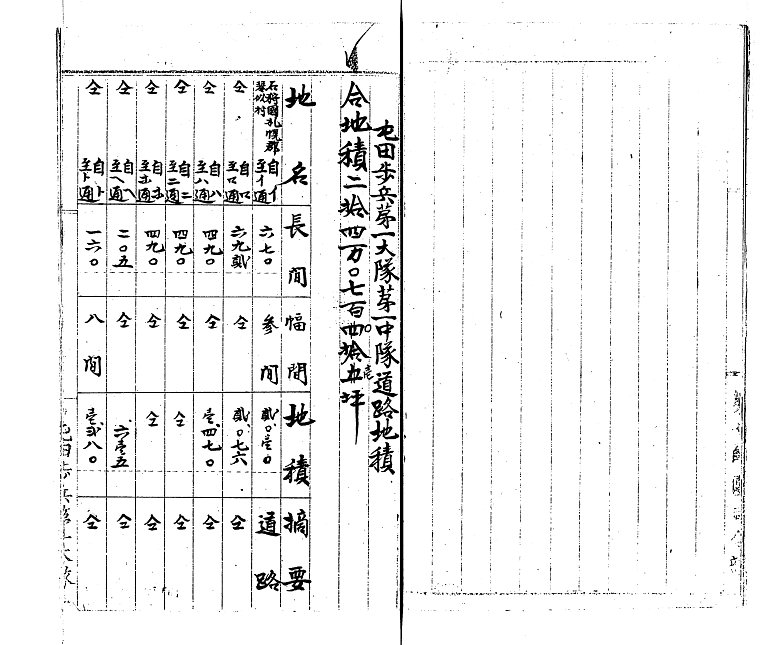 屯田歩兵第一大隊第一中隊道路地積
合地積二拾四万〇七百四拾五坪
地名 長間 幅間 地積 摘要
石狩國札幌郡琴似村 自イ至イ通 六七〇 参間 貳〇壱〇 道路
仝 自ロ至ロ通 六九貳 仝 貳〇七六 仝
仝 自ハ至ハ通 四九〇 仝 壱四七〇 仝
仝 自ニ至ニ通 四九〇 仝 仝 仝
仝 自ホ至ホ通 四九〇 仝 仝 仝
仝 自ヘ至ヘ通 二〇五 仝 六壱五 仝
仝 自ト至ト通 一六〇 八間 壱貳八〇 仝